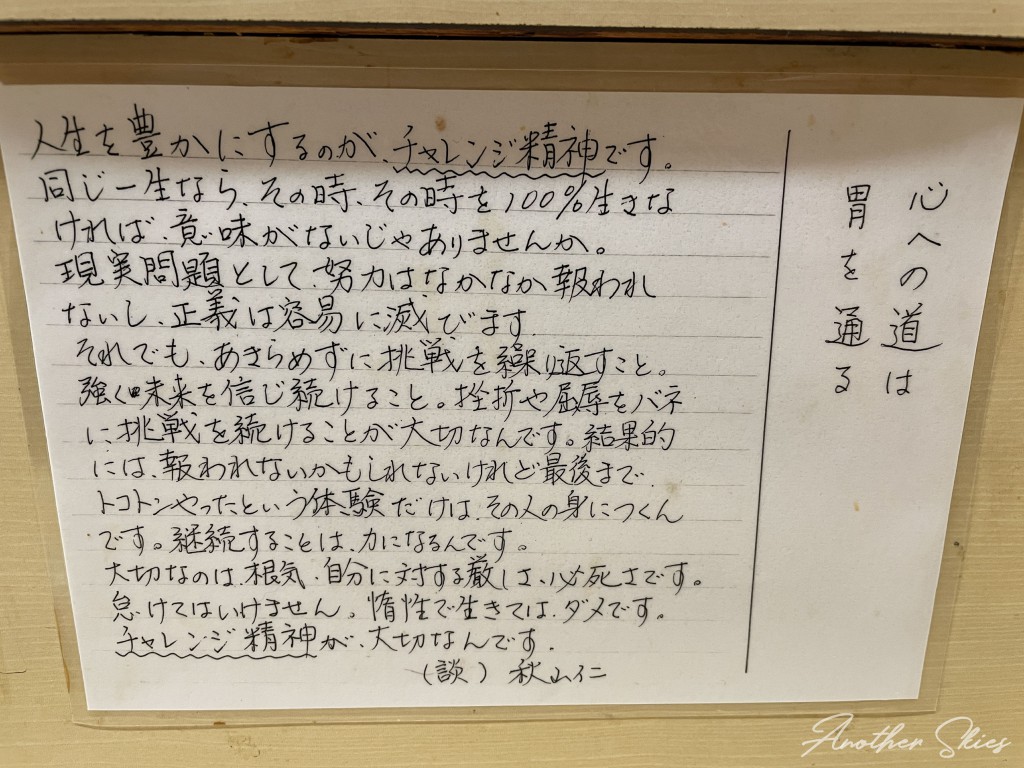 人生を豊かにするのが、チャレンジ精神です。
同じ一生なら、その時、その時を100%生きな
ければ、意味がないじゃありませんか。
現実問題として、努力はなかなか報われ
ないし、正義は容易に滅びます。
それでも、あきらめずに挑戦を繰り返すこと。
強く未来を信じ続けること。挫折や屈辱をバネ
に、挑戦を続けることが大切なんです。結果的
には、報われないかもしれないけれど最後まで、
トコトンやったという体験だけは、その人の身につくん
です。継続することは、力になるんです。
大切なのは、根気、自分に対する厳しさ、必死さです。
怠けてはいけません。惰性で生きては、ダメです。
チャレンジ精神が、大切なんです。
(談) 秋山仁
心への道は
胃を通る
Another Skies